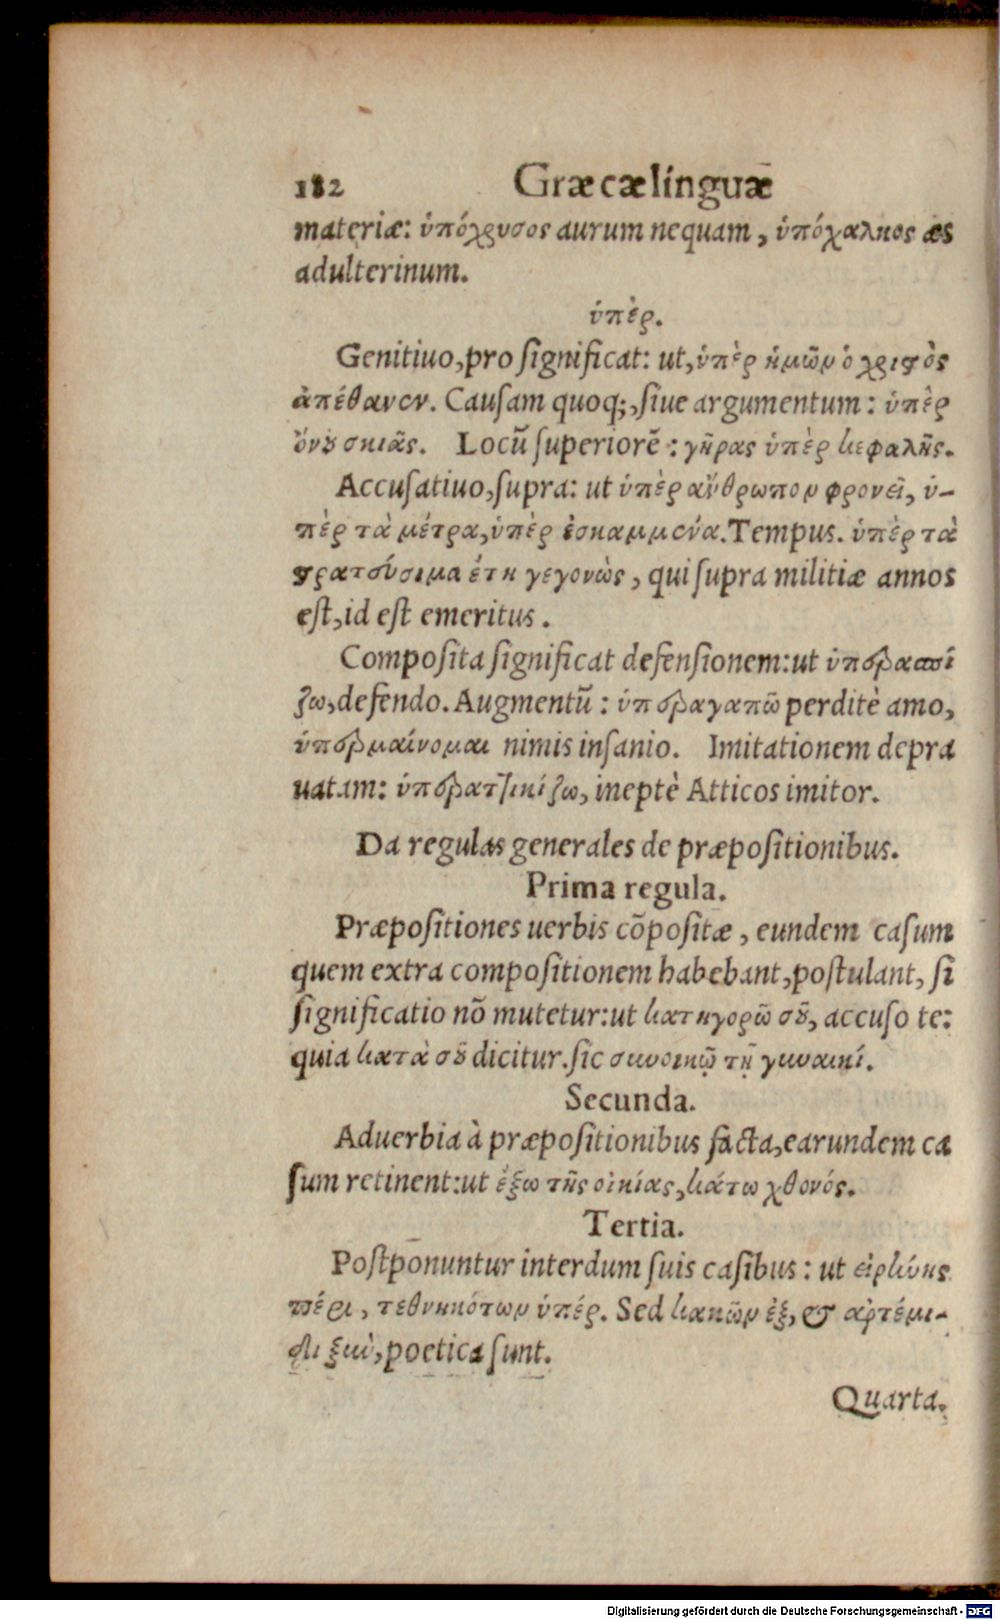 182 Græcæ linguæ
materiæ: ὑπόχρυσος aurum nequam, ὑπόχαλκος æs
adulterinum.
ὑπὲρ.
Genitiuo, pro significat: ut, ὑπὲρ ἡμῶν ὁ χριϛὸς
ἀπέθανεν. Causam quoq;, siue argumentum: ὑπὲρ
ὄνȣ σκιᾶς. Locū superiorē: γῆρας ὑπὲρ κεφαλῆς.
Accusatiuo, supra: ut ὑπὲρ ἄνθρωπον φρονεῖ, ὑ-
πὲρ τὰ μέτρα, ὑπὲρ ἐσκαμμένα. Tempus. ὑπὲρ τὰ
ϛρατεύσιμα ἔτη γεγονὼς, qui supra militiæ annos
est, id est emeritus.
Composita significat defensionem: ut ὑπερασπί
ζω, defendo. Augmentū: ὑπεραγαπῶ perditè amo,
ὑπερμαίνομαι nimis insanio. Imitationem depra
uatam: ὑπεραττικίζω, ineptè Atticos imitor.
Da regulas generales de præpositionibus.
Prima regula.
Præpositiones uerbis cōpositæ, eundem casum
quem extra compositionem habebant, postulant, si
significatio nō mutetur: ut κατηγορῶ σȣ͂, accuso te:
quia κατὰ σȣ͂ dicitur. sic συνοικῶ τῇ γυναικί.
Secunda.
Aduerbia à præpositionibus facta, earundem ca
sum retinent: ut ἔξω τῆς οἰκίας, κάτω χθονός.
Tertia.
Postponuntur interdum suis casibus: ut εἰρήνης
πέρι, τεθνηκότων ὑπέρ. Sed κακῶν ἐξ, & ἀρτέμι-
δι ξιὺ, poetica sunt.
Quarta.
Digitalisierung gefördert durch die Deutsche Forschungsgemeinschaft - DFG